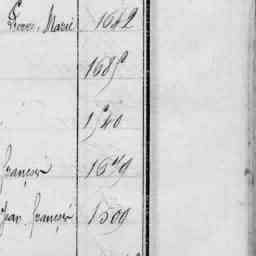 Pierre, Marie 1642
1685
1540
françois 1679
Jean françois 1509